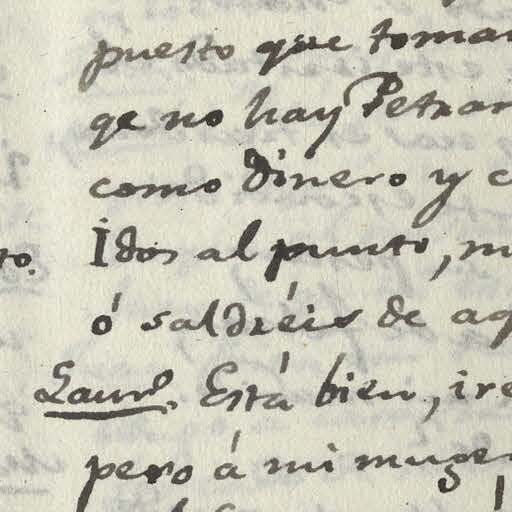 puesto que toman
qe no hay Petrar
como dinero y c
to. Idos al punto, m
ó saldréis de aq
Laurº. Está bien, iré
pero á mi muger